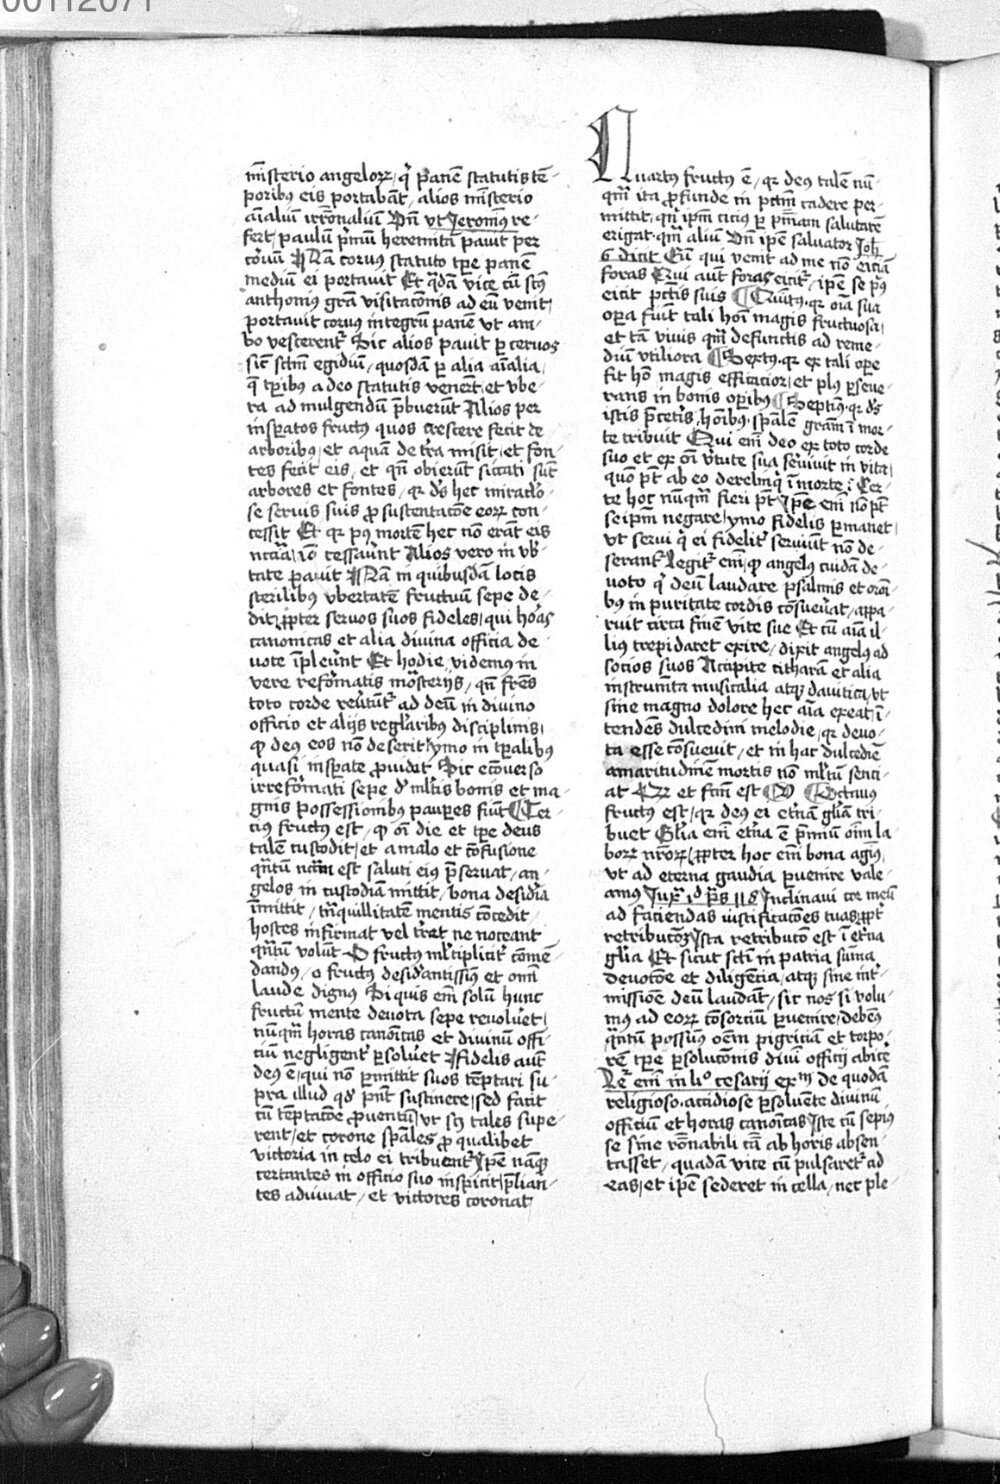 00112071
mīsterio angelorꝝ, q̇ panē statutis tē-
poribꝰ eis portabāt, alios mīsterio
aīaliū irrōnaliū Vn̄ vt Jeronimꝰ re-
fert, paulū pͥmū heremitā pauit per
coruū Nā coruꝰ statuto tꝑe panē
mediū ei portauit Et qͣdā vice cū scūs
anthoniꝰ grā visitacōnis ad eū venit,
portauit coruꝰ integrū panē vt am-
bo vescerentᷣ Sic alios pauit ꝑ ceruos
sic sctm̄ egidiū, quosdā ꝑ alia aīalia,
q̄ tꝑibꝰ a deo statutis venerūt, et vbe-
ra ad mulgendū p̄buerūt Alios per
insꝑatos fructꝰ quos crescere fecit de
arboribꝰ, et aquā de tr̄a misit, et fon-
tes fecit eis, et qn̄ obierūt siccati sūt
arbores et fontes, qꝛ dꝰs hec miraclo-
se seruis suis ꝓ sustentacōe eorꝝ con-
cessit Et qꝛ pꝰ mortē hec nō erāt eis
ncc̄ia, iō cessauūt Alios vero in vb̓-
tate pauit Nā in quibusdā locis
sterilibꝰ vbertatē fructuū sepe de-
dit, ꝓpter seruos suos fideles, qui horas
canonicas et alia diuina officia de-
uote īpleuerūt Et hodie, videmꝰ in
vere reformatis mōsterijs, qn̄ frēs
toto corde reūtūtᷣ ad deū in diuino
officio et alijs reglaribꝰ disciplinis,
ꝙ deꝰ eos nō deserit, ymo in tꝑalibꝰ
quasi insꝑate ꝓuidet Sic ecōuerso
irreformati sepe d̓ ml̓tis bonis et ma-
gnis possessionibꝰ pauꝑes fiūt ¶ Ter-
ciꝰ fructꝰ est, ꝙ om̄i die et tꝑe deus
talē custodit, et a malo et cōfusione
qn̄tū est saluti eiꝰ p̄seruat, an-
gelos in custodiā mittit, bona desid̓ia
īmittit, trāquillitatē mentis cōcedit,
hostes infirmat vel ne noceant
qn̄tū volūt O fructꝰ ml̓tiplicit̓ cōmē-
dandꝰ, o fructꝰ desid̓antissimꝰ et omī
laude dignꝰ Si quis em̄ solū hunc
fructū mente deuota sepe reuolueret,
nūqͣm horas canōicas et diuinū offi-
ciū negligent̓ ꝑsolueret Fidelis aūt
deꝰ ē, qui nō ꝑmittit suos tēptari su-
pra illud qd̓ pn̄t sustinere, sed facit
cū tēptacōe ꝓuentū, vt sꝫ tales supe-
rent, et corone spāles ꝓ qualibet
victoria in celo ei tribuentᷣ Ipē nāqꝫ
certantes in officio suo inspicit, p̄lian-
tes adiuuat, et victores coronat
Quartꝰ fructꝰ ē, qꝛ deꝰ talē nū-
qͣm̄ ita ꝓfunde in pctm̄ cadere per-
mittit, qn̄ ipm̄ ciciꝰ ꝑ pn̄iam salutarē
erigat qm̄ aliū Vn̄ ipē saluator Joh̓
6 dicit Eū qui venit ad me nō eiciā
foras Qui aūt foras eicitᷣ, ipē se pͥꝰ
eicit pctīs suis ¶ Quītꝰ, qꝛ oīa sua
opera fiūt tali hoī magis fructuosa,
et tā viuis qͣm defunctis ad reme-
diū vtiliora ¶ Sextꝰ, qꝛ ex tali oꝑe
fit hō magis efficacior, et plꝰ ꝑseue-
rans in bonis oꝑibꝰ ¶ Septimꝰ, qꝛ dꝰs
istis p̄ceteris hoībꝰ spālem grām ī mor-
te tribuit Qui em̄ deo ex toto corde
suo et ex oī v̓tute sua seruiuit in vita,
quō pt̄ ab eo derelinq̇ ī morte? Cer-
te hoc nūqm̄ fieri pt̄ Ipē em̄ nō pt̄
seipm̄ negare, ymo fidelis ꝑmanet,
vt serui q̇ ei fidelit̓ seruiūt nō de-
serantᷣ Legitᷣ em̄, ꝙ angelꝰ cuidā de-
uoto q̇ deū laudare psalmis et orōi-
bꝰ in puritate cordis cōsueuerat, appa-
ruit circa finē vite sue Et cū aīa il-
liꝰ trepidaret exire, dixit angelꝰ ad
socios suos Accipite citharā et alia
instrumēta musicalia atqꝫ dauitica, vt
sine magno dolore hec aīa exeat, ī-
tendēs dulcedini melodie, qꝛ deuo-
ta esse cōsueuit, et in hac dulcedīe
amaritudinē mortis nō ml̓tū senci-
at et factū est ¶ Octauus
fructꝰ est, qꝛ deꝰ ei et̓nā glīā tri-
buet Glīa em̄ et̓na ē p̄miū oīm la-
borꝝ nr̄orꝝ, ꝓpter hoc em̄ bona agimꝰ,
vt ad eterna gaudia ꝑuenire vale-
amꝰ Juxͣ id̓ ps̄ 118 Inclinaui cor meū
ad faciendas iustificacōes tuas, ꝓpt̓
retribucōꝫ Ista retribucō est ī et̓na
glīa Et sicut scti in patria sūma
deuocōe et diligētia, atqꝫ sine int̓-
missione deū laudāt, sic nos si volu-
mꝰ ad eorꝝ cōsorciū ꝑuenire, debemꝰ
qn̄tū possumꝰ oēm pigriciā et torpo-
rē tꝑe ꝑsolucōnis diuī officij abicere
Le͛ em̄ in liᵒ cesarij exᵐ de quodā
religioso, accidiose ꝑsoluente diuinū
officiū et horas canōicas Iste cū sepiꝰ
se sine rōnabili cā ab horis absen-
tasset, quadā vice cū pulsaretᷣ ad
eas, et ipē sederet in cella, nec ple-